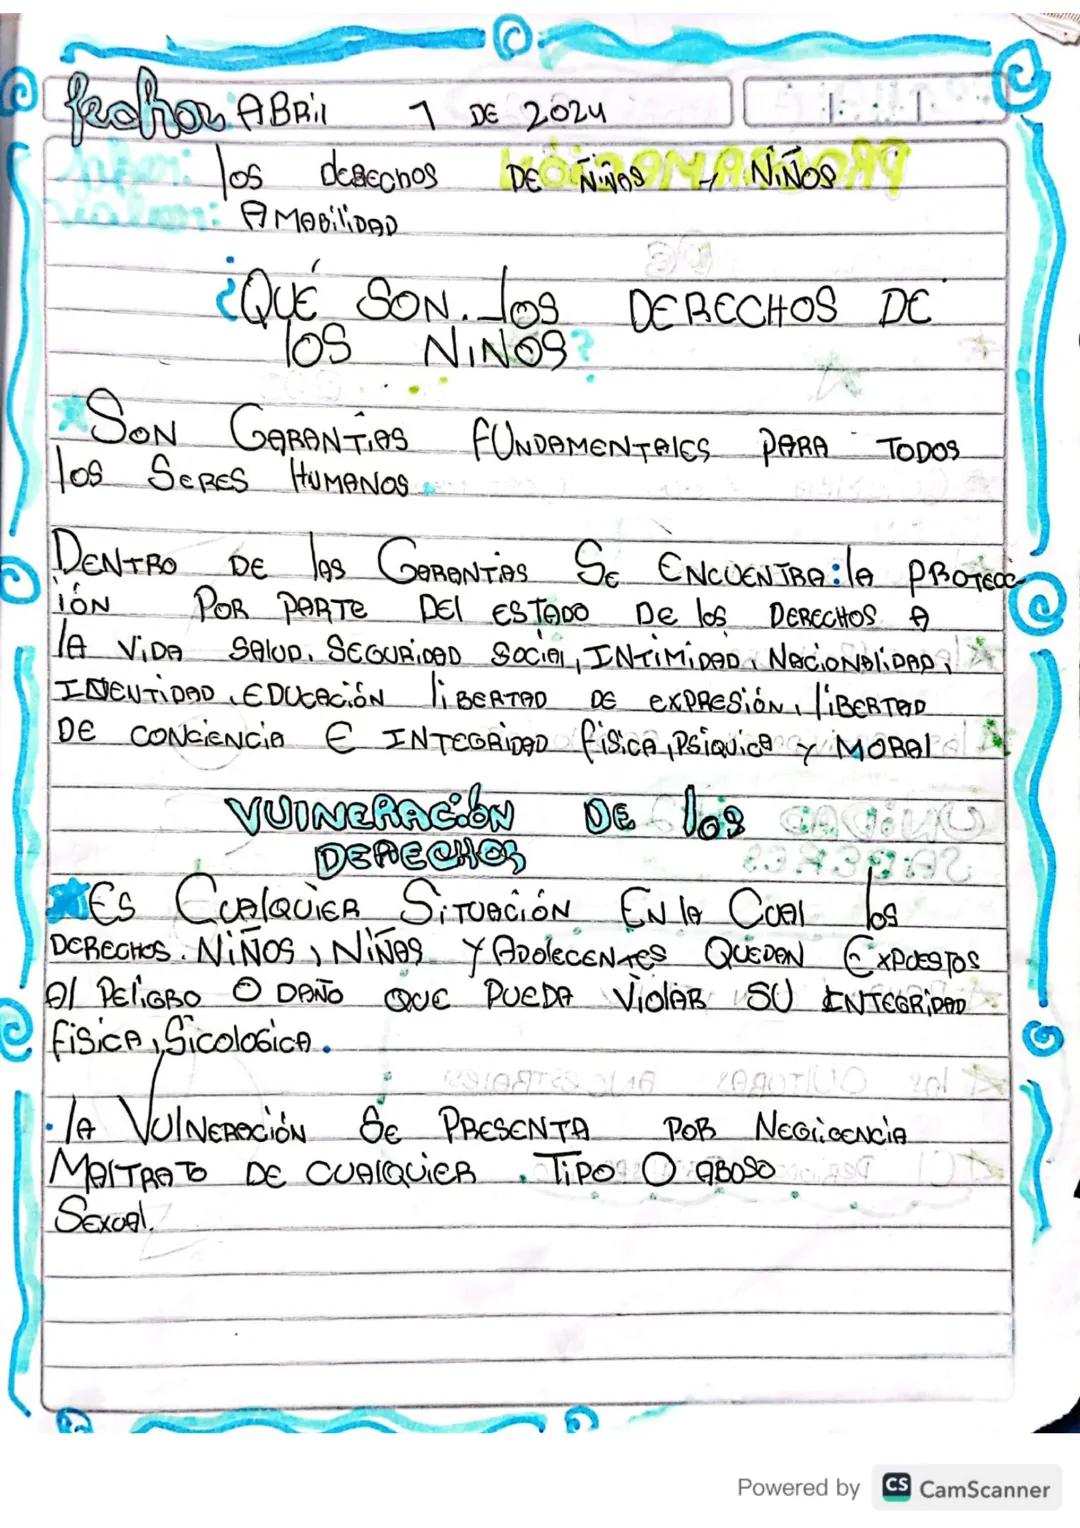 fecha: ABRil 1 DE 2024
los derechos DE NiÑas y NiÑOS
AMABiliDAD
¿QUÉ SON los DERECHOS DE
los NIÑOS?
SON GARANTÍAS FUNDAMENTALES PARA TODOS
los SERES HUMANOS.
DENTRO DE las GARANTÍAS SE ENCUENTRA: la PROTECC
iÓN POR PARTE DEl ESTADO De los DERECHOS A
lA ViDA SALUD, SEGURiDAD SOCiAl, INTIMiDAD, NACiONAliDAD,
IDENTiDAD, EDUCACiÓN liBERTAD DE eXPRESiÓN, liBERTAD
DE CONCiENCiA E INTEGRiDAD fiSiCA, PSiQUiCA y MORAl
VUlNERACiÓN DE los
DERECHOS
ES CUAlQUiER SiTUACiÓN EN lA CUAl los
DERECHOS. NiÑOS, NiÑAS Y ADOlECENTES QUEDAN EXPUESTOS
Al PEliGRO O DAÑO QUE PUEDA ViOlAR SU INTEGRiDAD
fiSiCA, SicoloGiCA.
. lA VUlNERACiÓN SE PRESENTA POR NEGliGENCiA
MAlTRATO DE CUAlQUiER TiPO O ABUSO
SEXUAl.
Powered by CS CamScanner